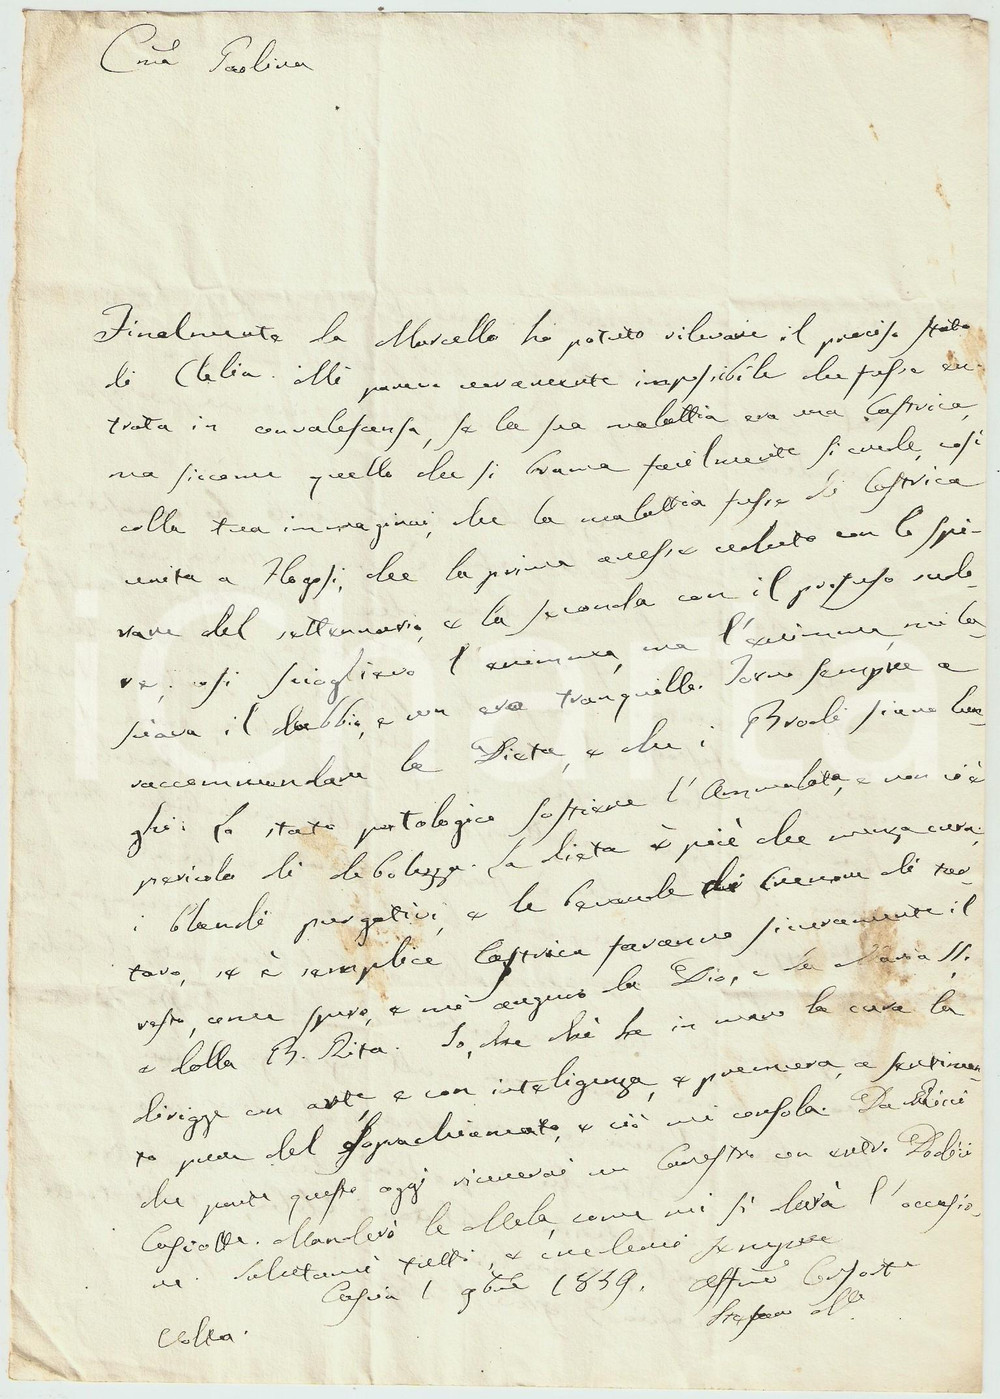 C.ma Paolina
Finalmente da Marcello ho potuto rilevare il preciso stato
di Clelia. Mi pareva veramente impossibile che fusse en-
trata in convalescensa, se la sua malattia era una Gastrica,
ma siccome quello che si brama facilmente si crede, così
colla tua immaginai, che la malattia fusse di Gastrica
unita a Flogosi, che la prima avesse ceduto con lo spi-
rare del settennario, e la seconda con il profuso sudo-
re; così scioglievo l'enimma, ma l'enimma, mi la-
sciava il dubbio, e non ero tranquillo. Torno sempre a
raccommandare la Dieta, e che i Brodi siano lun-
ghi: Lo stato patologico sostiene l'Ammalata, e non v'è
pericolo di debolezza. La dieta è più che mezza cura;
i blandi purgativi, e le bevande di Cremor di tar-
taro, se è semplice Gastrica faranno sicuramente il
resto, come spero, e mi auguro da Dio, e da Maria SS.
e dalla B. Rita. So, che chi ha in mano la cura la
dirigge con arte, e con inteligenza, e premura, e sentimen-
to pure del Soprachiamato, e ciò mi consola. Da Ricci
che parte questo oggi riceverai un Canestro con entro Dodici
Casciotte. Manderò le Mela, come mi si darà l'occasio-
ne. Salutami tutti, e credemi sempre
Cascia 1 9bre 1839. Affmo Consorte
Volta.